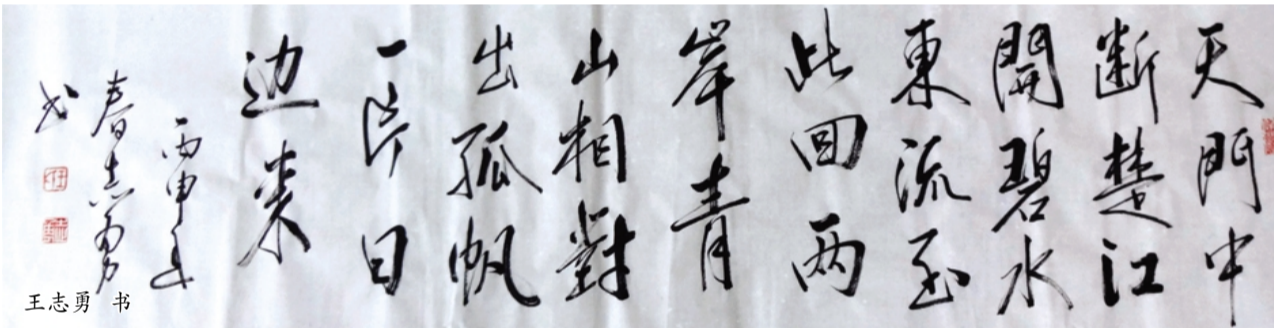 天門中
断楚江
開碧水
東流至
此回两
岸青
山相對
出孤帆
一片日
边来
丙申年
春志勇
书
王志勇 书